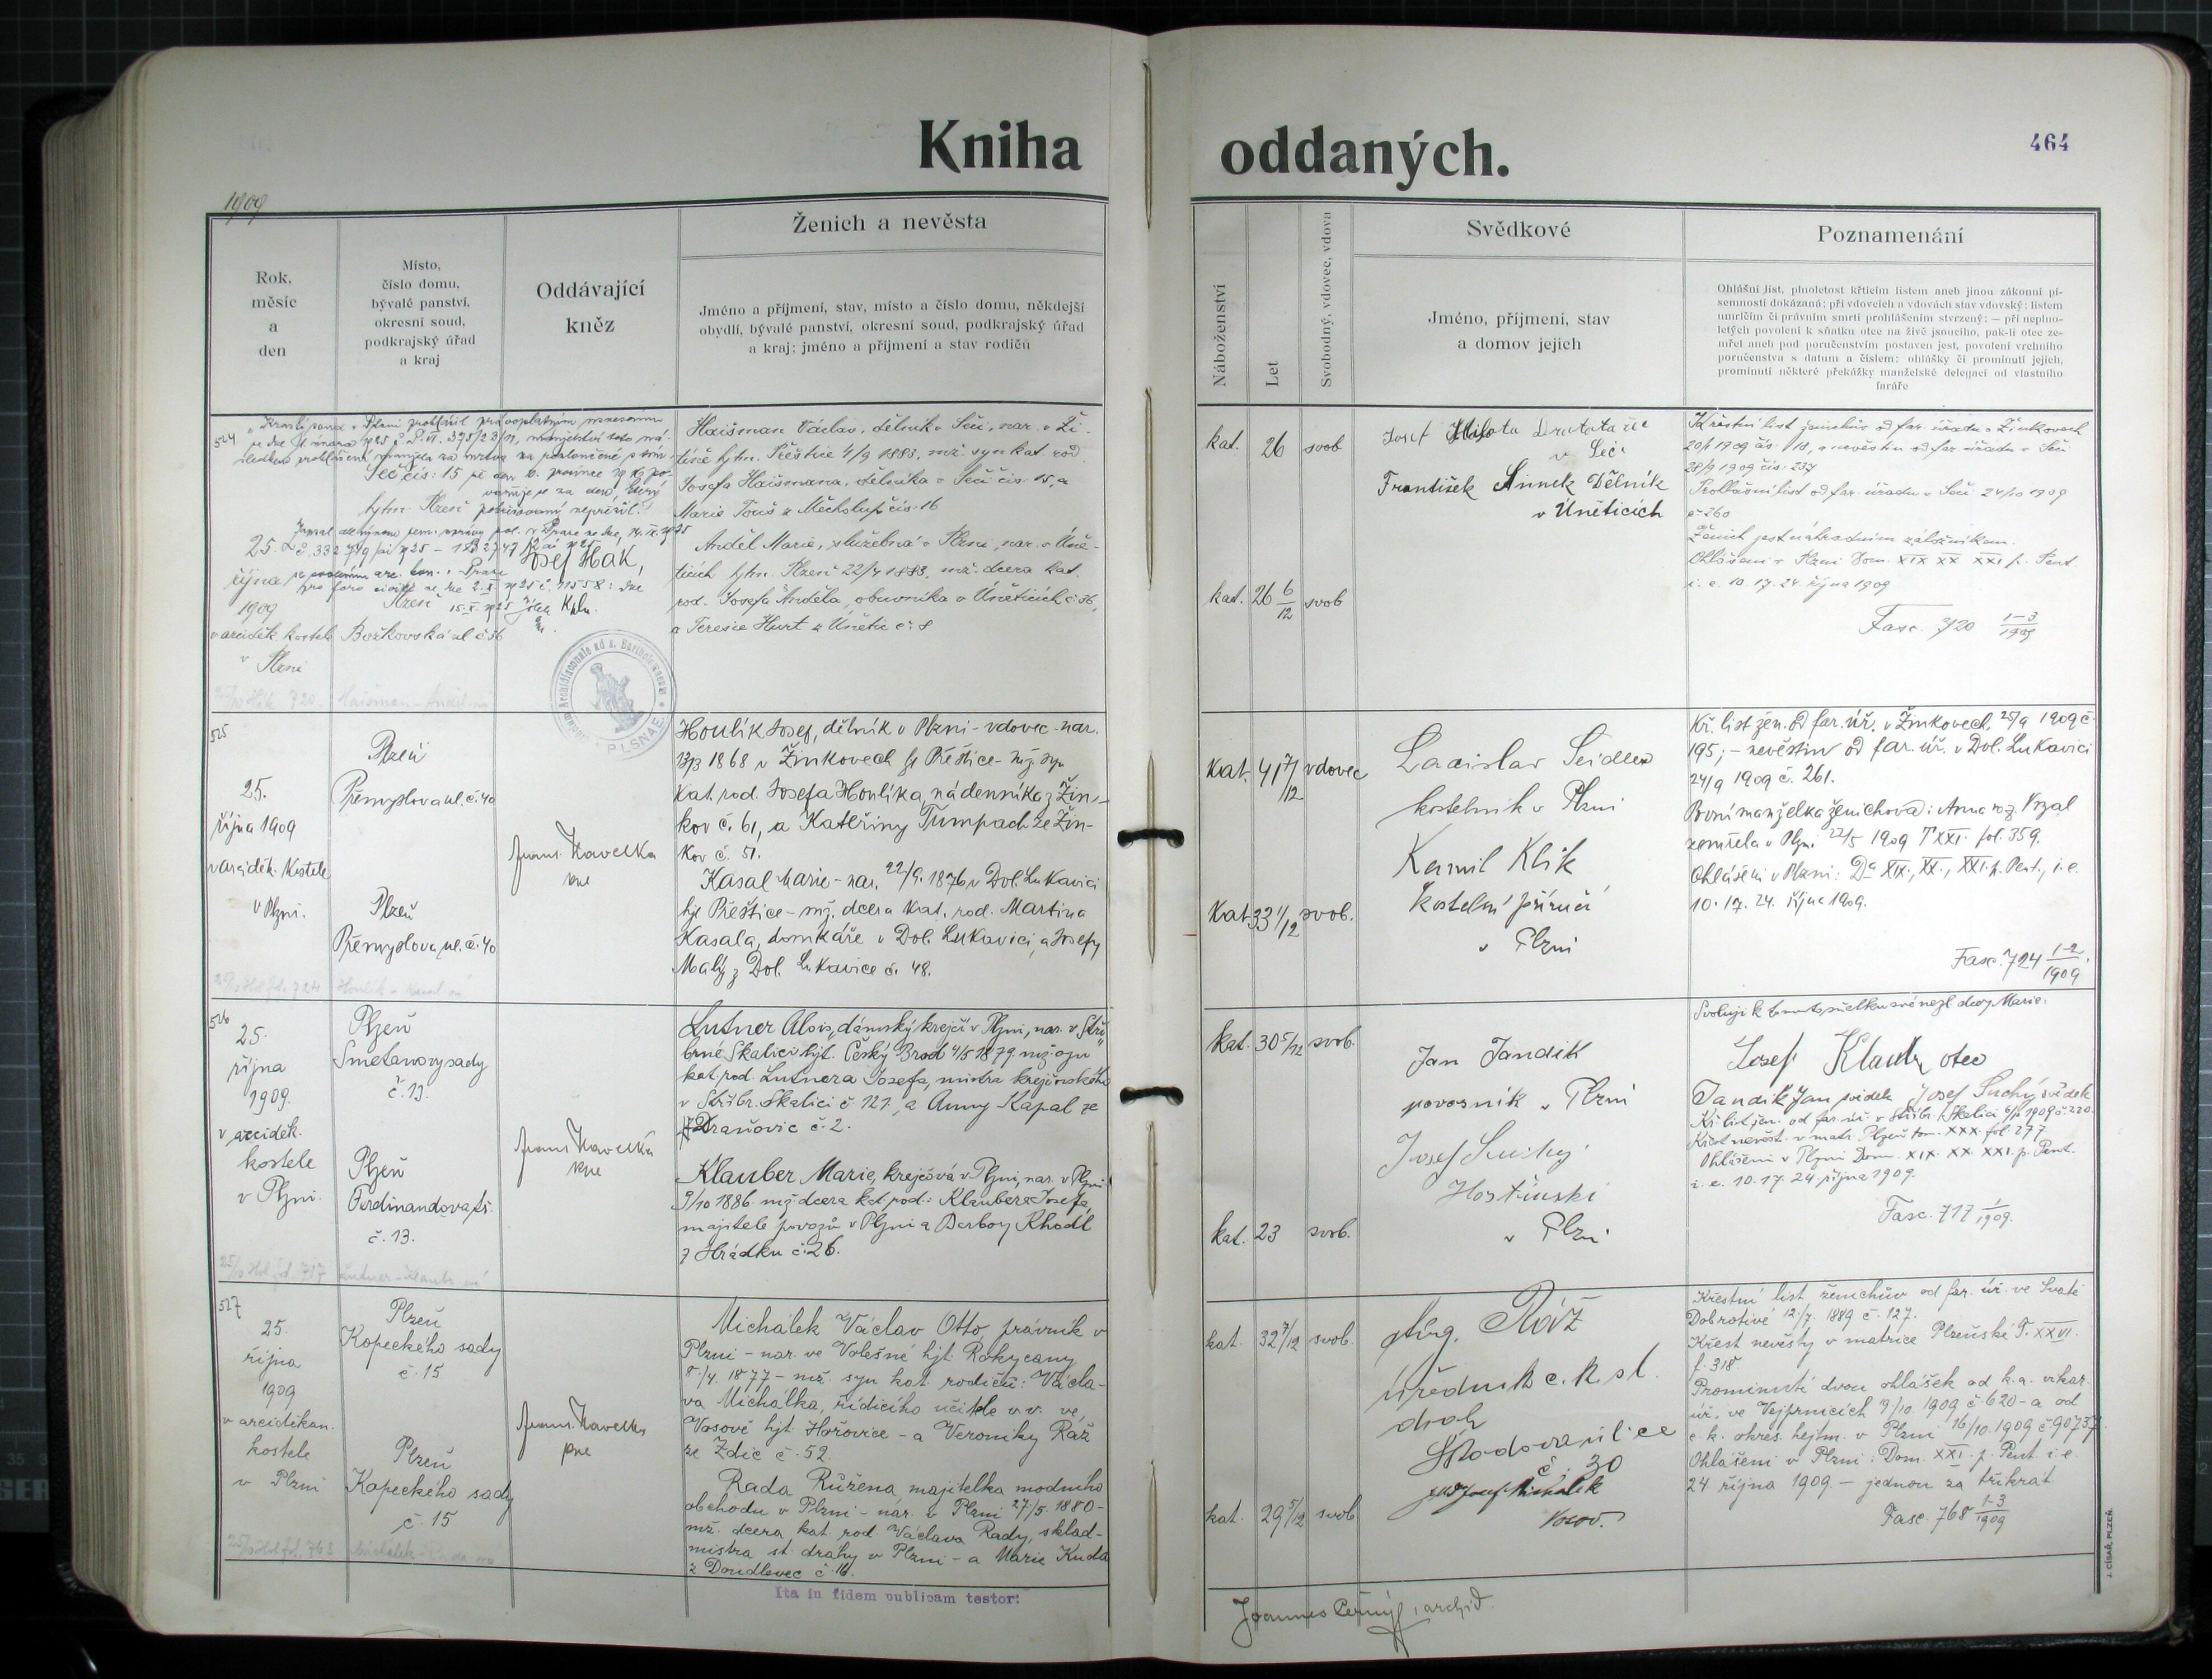 Kniha oddaných.
464
1909
Rok,
měsíc
a
den
Místo,
číslo domu,
bývalé panství,
okresní soud,
podkrajský úřad
a kraj
Oddávající
kněz
Ženich a nevěsta
Jméno a příjmení, stav, místo a číslo domu, někdejší
obydlí, bývalé panství, okresní soud, podkrajský úřad
a kraj; jméno a příjmení a stav rodičů
Náboženství
Let
Svobodný, vdovec, vdova
Svědkové
Jméno, příjmení, stav
a domov jejich
Poznamenání
Ohlášní list, plnoletost křticím listem aneb jinou zákonní pí-
semností dokázaná; při vdovcích a vdovách stav vdovský; listem
umrlčím či právním smrti prohlášením stvrzený; — při neplno-
letých povolení k sňatku otce na živě jsoucího, pak-li otec ze-
mřel aneb pod poručenstvím postaven jest, povolení vrchního
poručenstva s datum a číslem; ohlášky či prominutí jejich,
prominutí některé překážky manželské delegací od vlastního
faráře
524
25.
října
1909
v arciděk. kostele
v Plzni
Seč čís. 15
Plzeň
Božkovská ul. č. 36
Josef Hak,
Haišman Václav, dělník v Seči, nar. v Ži-
tíně hjtm. Přeštice 4/9 1883, mž. syn kat. rod.
Josefa Haišmana, dělníka v Seči čís. 15, a
Marie Touš z Měcholup čís. 16
Anděl Marie, služebná v Plzni, nar. v Úně-
ticích hjtm. Plzeň 22/4 1883, mž. dcera kat.
rod. Josefa Anděla, obuvníka v Úněticích č. 36,
a Terezie Hurt z Únětic č. 8
PLSNAE
kat. 26 svob
kat. 26 6/12 svob
v Seči
František Šimek Dělník
v Úněticích
Křestní list ženichův od far. úřadu v Žinkovech
20/9 1909 čís. 18, a nevěstin od far. úřadu v Seči
28/9 1909 čís. 237
Prohlášní list od far. úřadu v Seči 24/10 1909
č. 260
Ženich jest náhradním záložníkem.
Ohlášeni v Plzni Dom. XIX XX XXI p. Pent.
i. e. 10. 17. 24. října 1909
Fasc. 720 1-3/1909
525
25.
října 1909
v arciděk. kostele
v Plzni.
Plzeň
Přemyslova ul. č. 40
Plzeň
Přemyslova ul. č. 40
Frant. Havelka
Houlík Josef, dělník v Plzni - vdovec - nar.
13/3 1868 v Žinkovech hjt Přeštice - mž. syn
kat. rod. Josefa Houlíka, nádenníka z Žin-
kov č. 61, a Kateřiny Tumpach ze Žin-
kov č. 51.
Kasal Marie - nar. 22/9. 1876 v Dol. Lukavici
hjt Přeštice - mž. dcera kat. rod. Martina
Kasala, domkáře v Dol. Lukavici, a Josefy
Malý z Dol. Lukavice č. 48.
kat. 41 7/12 vdovec
kat. 33 1/12 svob.
Ladislav Seidler
kostelník v Plzni
Kamil Klik
kostelní příručí
v Plzni
Kř. list žen. od far. úř. v Žinkovech 25/9 1909 č.
195; - nevěstin od far. úř. v Dol. Lukavici
24/9 1909 č. 261.
První manželka ženichova: Anna roz. Vrzal
zemřela v Plzni 22/5 1909 T XXI. fol. 359.
Ohlášeni v Plzni: Dca XIX., XX., XXI. p. Pent., i. e.
10. 17. 24. října 1909.
Fasc. 724 1-2/1909
526
25.
října
1909.
v arciděk.
kostele
v Plzni.
Plzeň
Smetanovy sady
č. 13.
Plzeň
Ferdinandova tř.
č. 13.
Frant. Havelka
Lutner Alois, dámský krejčí v Plzni, nar. v Stří-
brné Skalici hjt. Český Brod 4/5 1879. mž. syn
kat. rod. Lutnera Josefa, mistra krejčovského
v Stříbr. Skalici č. 121, a Anny Kapal ze
Zdraňovic č. 2.
Klauber Marie, krejčová v Plzni, nar. v Plzni
9/10 1886. mž. dcera kat. rod.: Klaubera Josefa,
majitele povozů v Plzni a Barbory Khodl
z Hrádku č. 26.
kat. 30 5/12 svob.
kat. 23 svob.
Jan Jandik
povozník v Plzni
Josef Suchý
Hostinský
v Plzni
Svoluji k tomuto sňatku své nezl. dcery Marie:
Josef Klauber otec
Jandik Jan svědek Josef Suchý svědek
Kř. list žen. od far. úř. v Stříbr. Skalici 6/10 1909 č. 220.
Křest nevěst. v matr. Plzeň tom. XXX. fol. 277
Ohlášeni v Plzni Dom. XIX. XX. XXI. p. Pent.
i. e. 10. 17. 24. října 1909.
Fasc. 717 1/1909.
527
25.
října
1909
v arciděkan.
kostele
v Plzni
Plzeň
Kopeckého sady
č. 15
Plzeň
Kopeckého sady
č. 15
Frant. Havelka
Michálek Václav Otto, právník v
Plzni - nar. ve Volešné hjt. Rokycany
8./4. 1877 - mž. syn kat. rodičů: Václa-
va Michálka, řídícího učitele v. v. ve
Vosově hjt. Hořovice - a Veroniky Ráž
ze Zdic č. 52.
Rada Růžena, majitelka modního
obchodu v Plzni - nar. v Plzni 27/5. 1880 -
mž. dcera kat. rod. Václava Rady, sklad-
mistra st. dráhy v Plzni - a Marie Kuda
z Doudlevec č. 16.
kat. 32 7/12 svob.
kat. 29 5/12 svob
Aug. Ráž
úředník c. k. st.
drah
Škodova ulice
č. 30
Vosov.
Křestní list ženichův od far. úř. ve Svaté
Dobrotivé 12./7. 1889 č. 127.
Křest nevěsty v matrice Plzeňské T. XXVI.
f. 318.
Prominutí dvou ohlášek od k. a. vikar.
úř. ve Vejprnicích 9/10. 1909 č. 620 - a od
c. k. okres. hejtm. v Plzni 16/10. 1909 č. 90737.
Ohlášeni v Plzni: Dom. XXI. p. Pent. i. e.
24. října 1909 - jednou za třikrát
Fasc. 768 1-3/1909
Ita in fidem publicam testor:
Joannes Černý, archid.
J. CÍSAŘ, PLZEŇ